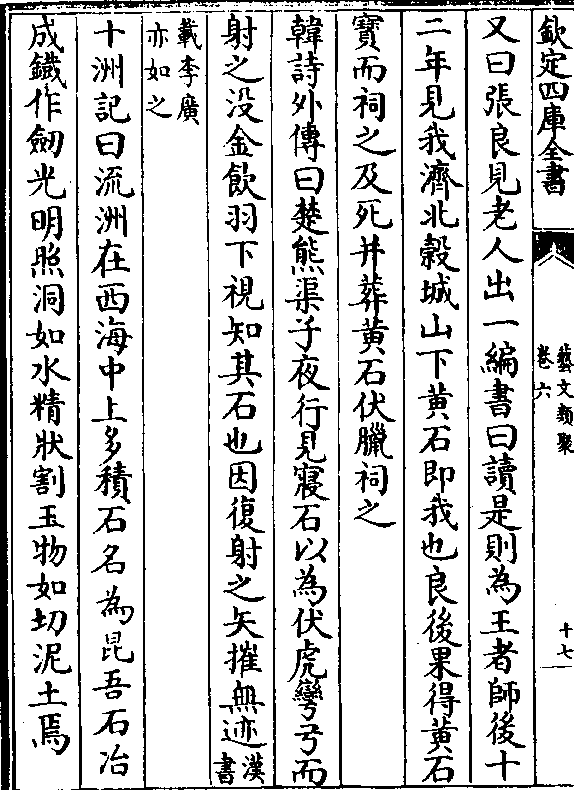 欽定四庫全書
藝文類聚
卷六
十七
又曰張良見老人出一編書曰讀是則為王者師後十
二年見我濟北穀城山下黃石即我也良後果得黃石
寳而祠之及死并葬黃石伏臘祠之
韓詩外傳曰楚熊渠子夜行見寢石以為伏虎彎弓而
射之没金飲羽下視知其石也因復射之矢摧無迹漢書
載李廣
亦如之
十洲記曰流洲在西海中上多積石名為昆吾石冶
成鐵作劒光明照洞如水精狀割玉物如切泥土焉